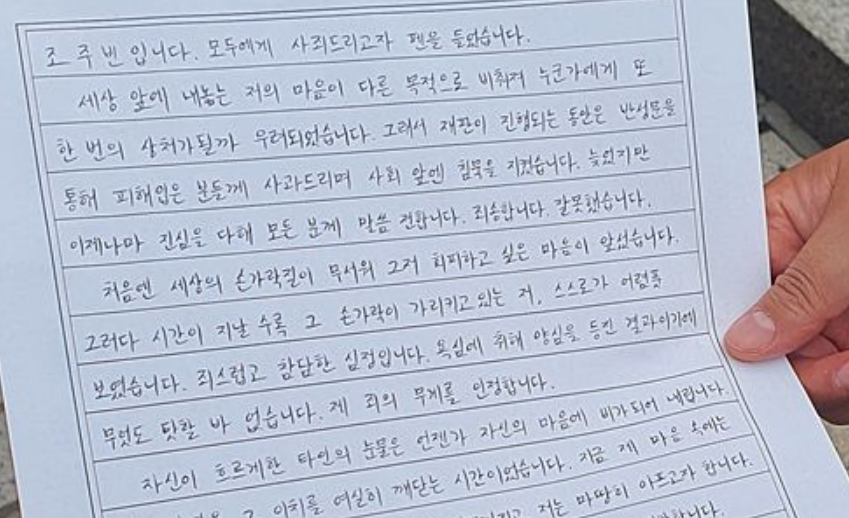 조 주 빈 입니다. 모두에게 사죄드리고자 펜을 들었습니다.
세상 앞에 내놓는 저의 마음이 다른 목적으로 비춰져 누군가에게 또
한 번의 상처가될까 우려되었습니다. 그래서 재판이 진행되는 동안은 반성문을
통해 피해입은 분들께 사과드리며 사회 앞엔 침묵을 지켰습니다. 늦었지만
이제나마 진심을 다해 모든 분께 말씀 전합니다. 죄송합니다. 잘못했습니다.
처음엔 세상의 손가락질이 무서워 그저 회피하고 싶은 마음이 앞섰습니다.
그러다 시간이 지날 수록 그 손가락이 가리키고있는 저, 스스로가 어렴풋
보였습니다. 죄스럽고 참담한 심정입니다. 욕심에 취해 양심을 등진 결과이기에
무엇도 탓할 바 없습니다. 제 죄의 무게를 인정합니다.
자신이 흐르게한 타인의 눈물은 언젠가 자신의 마음에 비가되어 내립니다.
그 이치를 여실히 깨닫는 시간이었습니다. 지금 제 마음 속에는
저는 마땅히 아프고자 합니다.